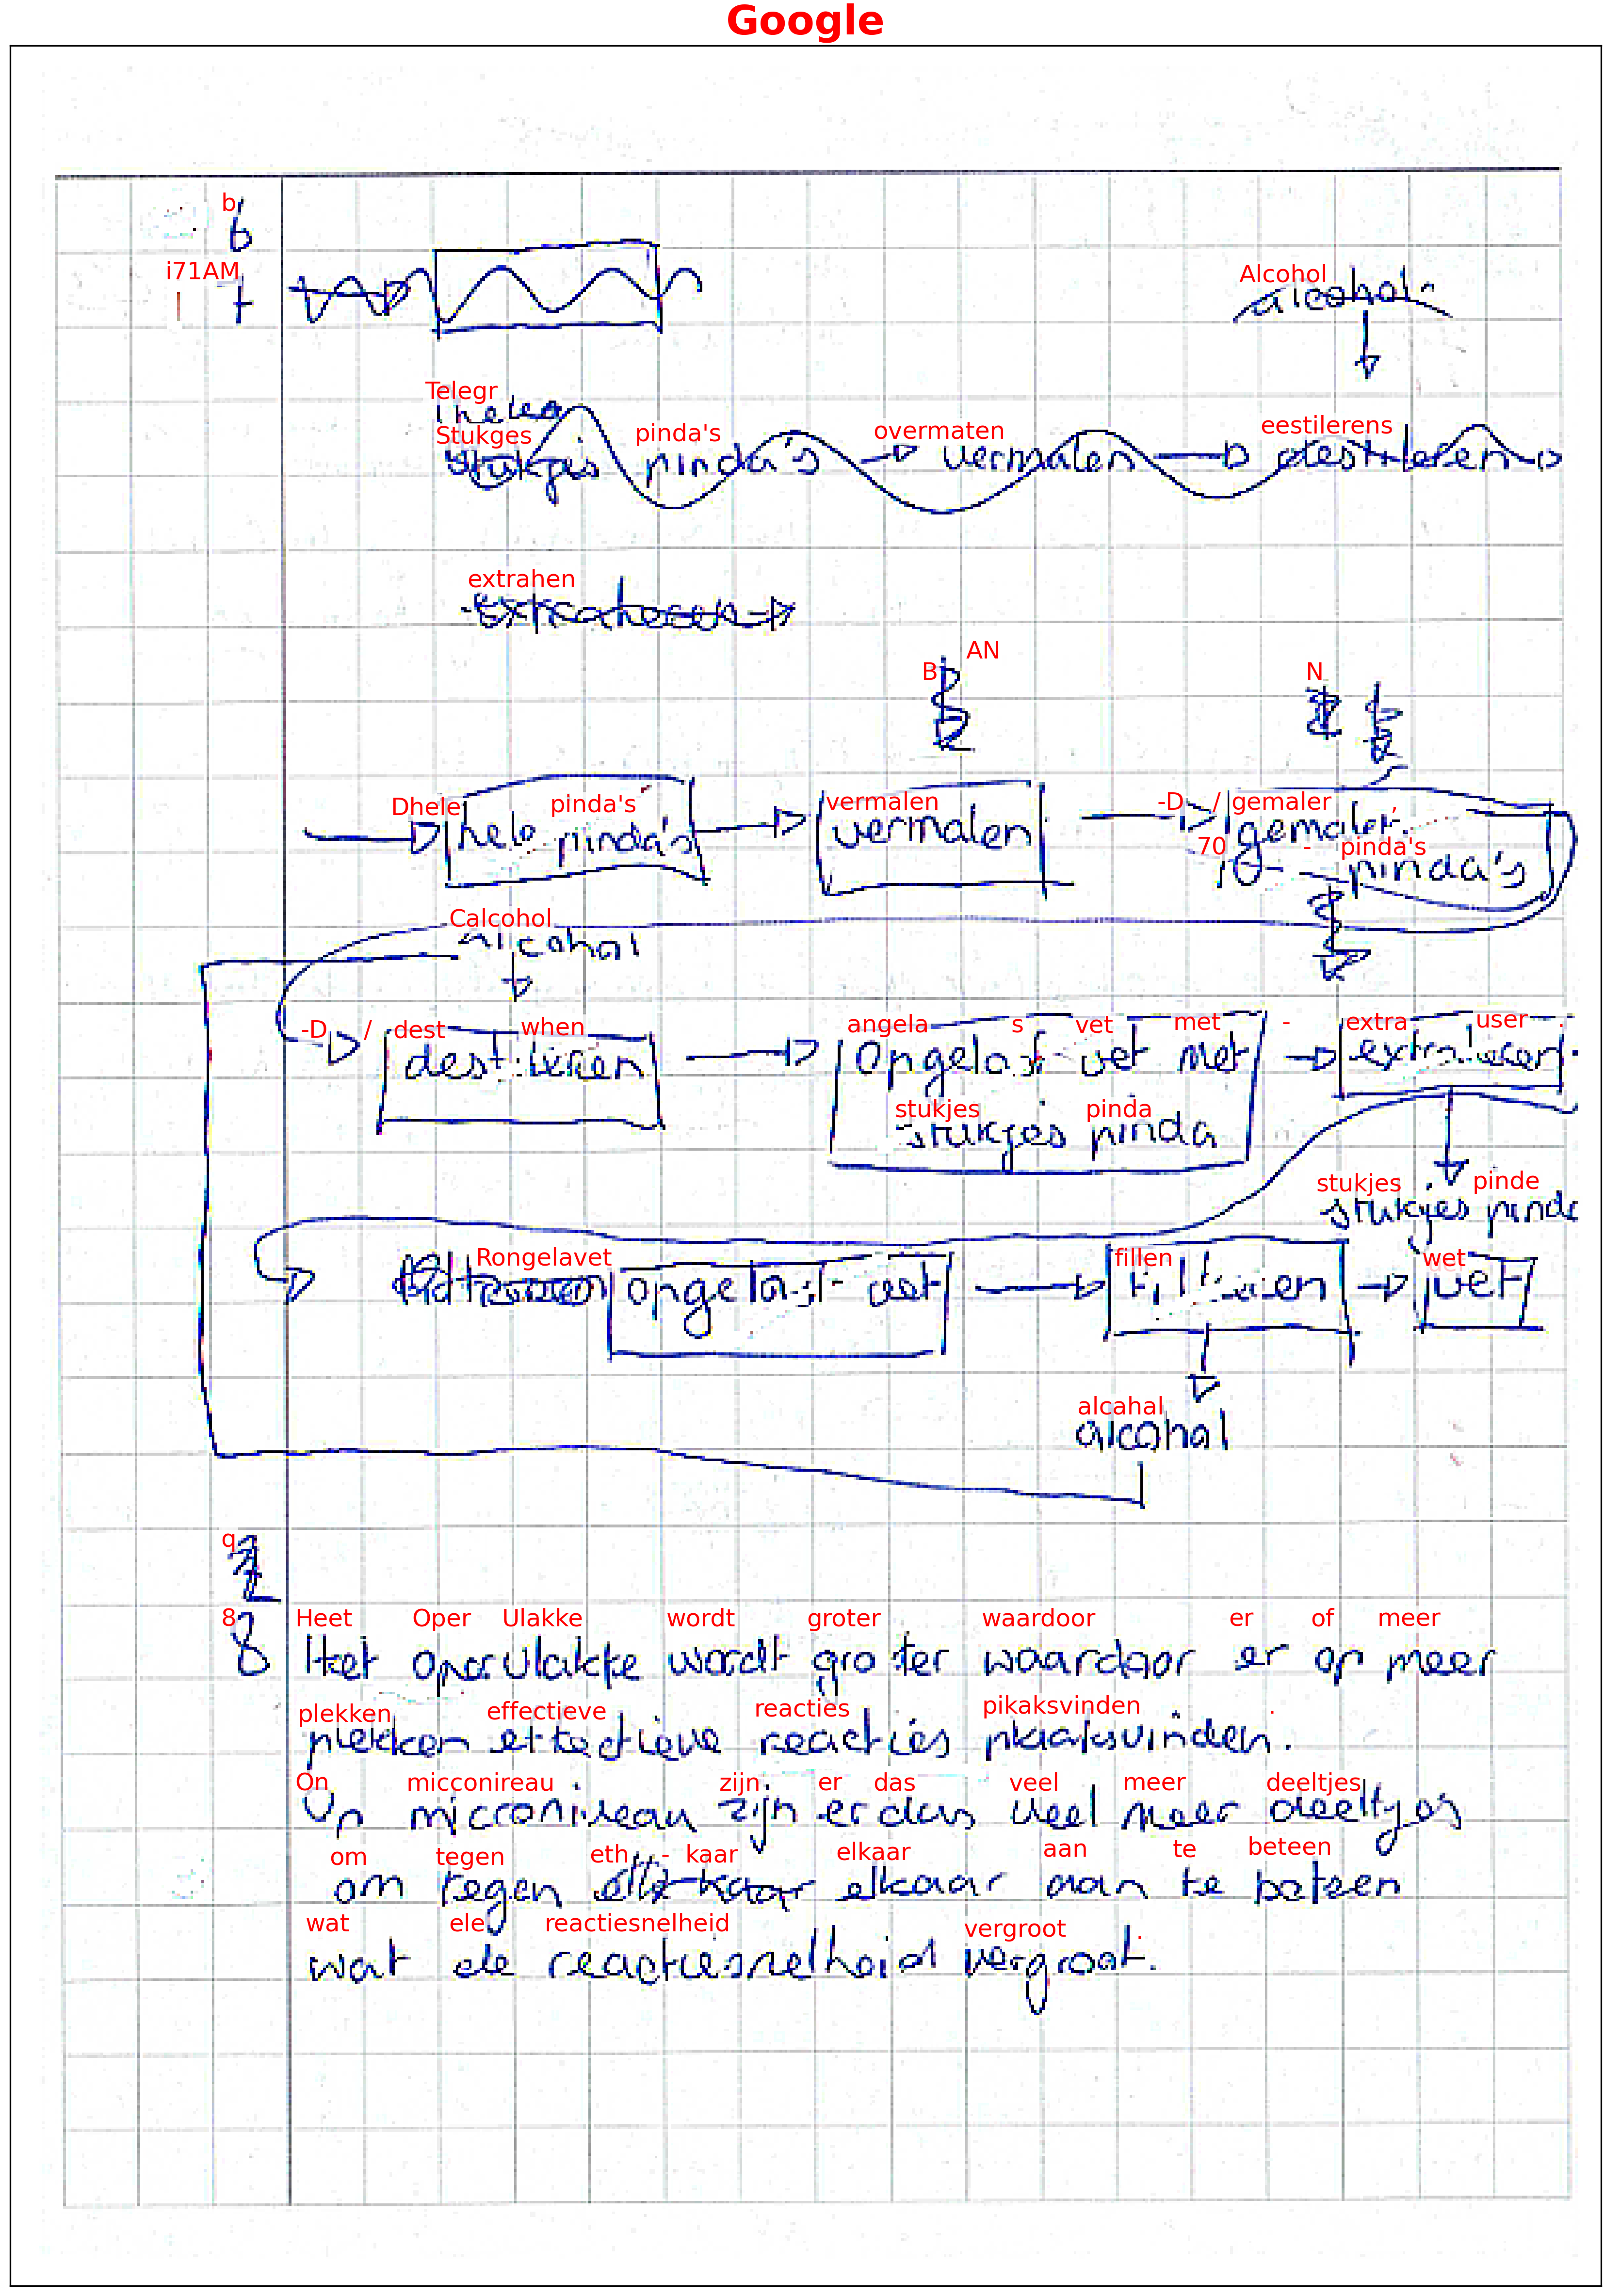 Google
b
6
i71AM
7
Alcohol
alcohol
Telegr
Stukges pinda's overmaten eestilerens
stukjes pinda's vermalen destileren
extrahen
extraheren
B AN N
Dhele pinda's vermalen -D / gemaler
hele pinda's vermalen gemalen
70 - pinda's
pinda's
Calcohol
alcohol
-D / dest when angela s vet met - extra user .
destileren opgelost vet met extraheren
stukjes pinda
stukjes pinda
stukjes pinde
stukjes pinda
Rongelavet fillen wet
opgelost vet filtreren vet
alcahal
alcohol
q
8 Heet Oper Ulakke wordt groter waardoor er of meer
8 Het oppervlakte wordt groter waardoor er op meer
plekken effectieve reacties pikaksvinden .
plekken effectieve reacties plaatsvinden.
On micconireau zijn er das veel meer deeltjes
Op microniveau zijn er dus veel meer deeltjes
om tegen eth - kaar elkaar aan te beteen
om tegen elkaar aan te botsen
wat ele reactiesnelheid vergroot .
wat de reactiesnelheid vergroot.